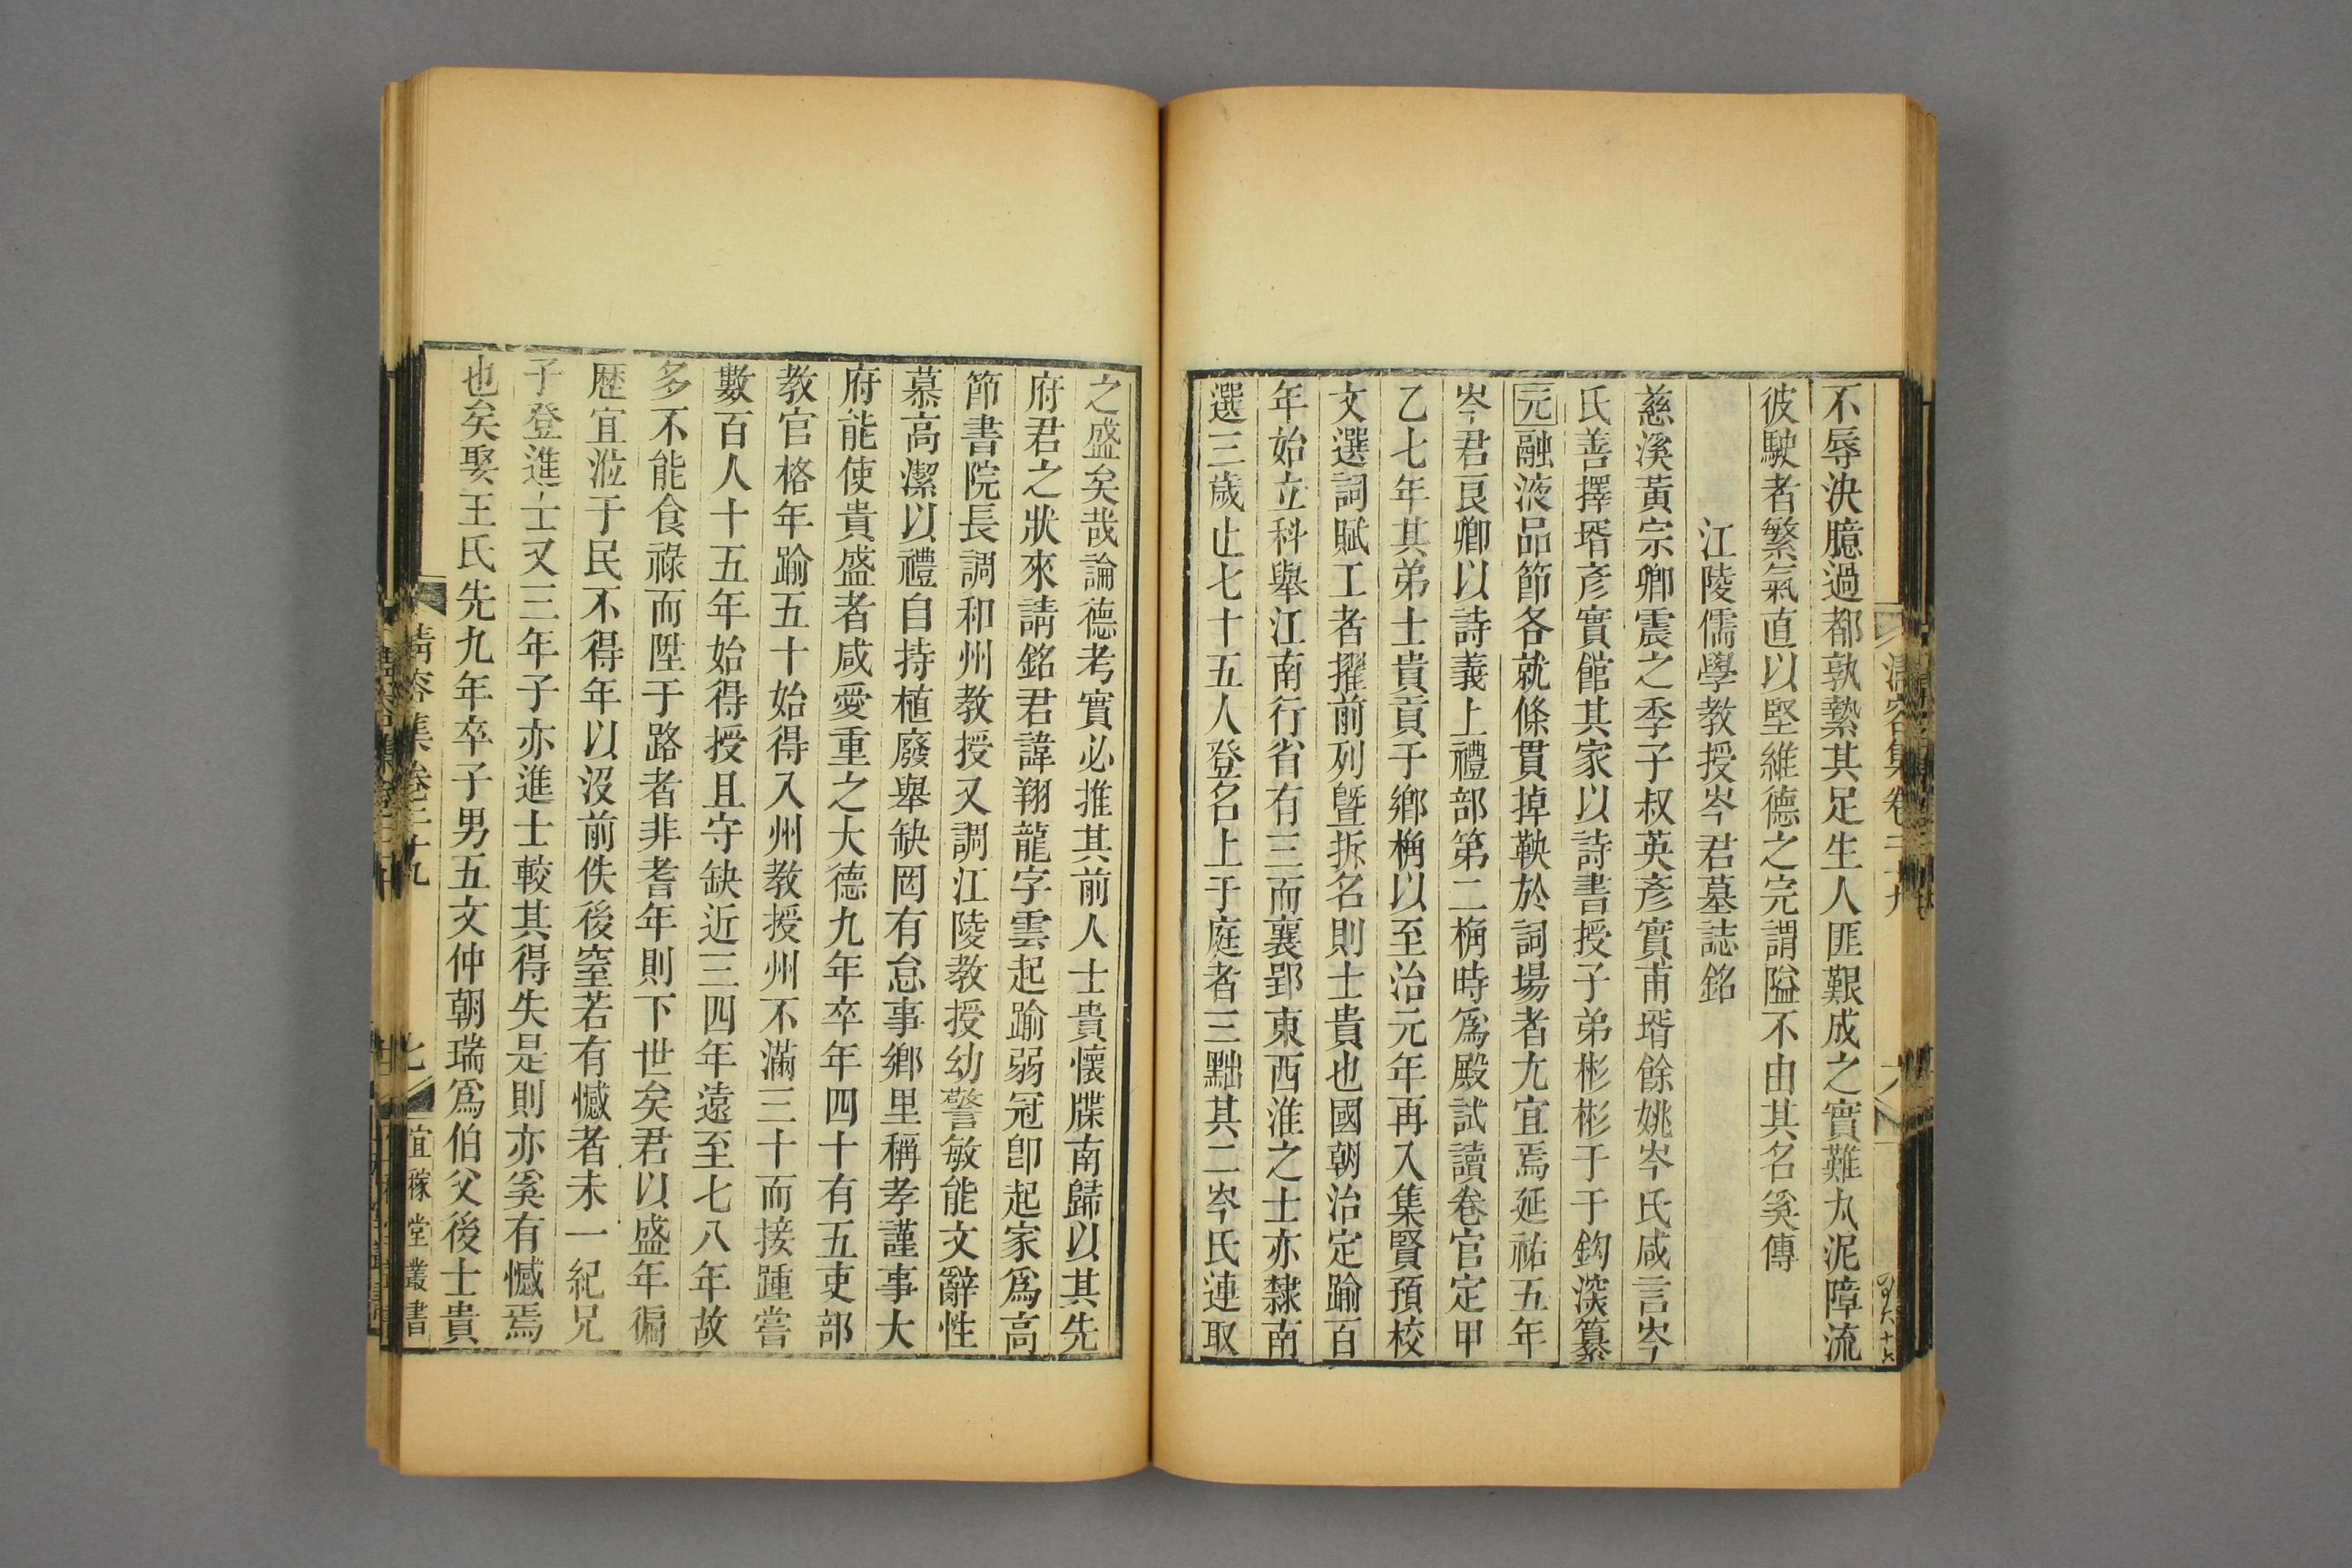 清容集卷二十九
不辱決臆過都孰縶其足生人匪艱成之實難丸泥障流
彼駛者繁氣直以堅維德之完謂隘不由其名奚傳
江陵儒學教授岑君墓誌銘
慈溪黃宗卿震之季子叔英彥實甫壻餘姚岑氏咸言岑
氏善擇壻彥實館其家以詩書授子弟彬彬于于鈎深纂
元融液品節各就條貫掉鞅於詞場者尤宜焉延祐五年
岑君良卿以詩義上禮部第二稱時爲殿試讀卷官定甲
乙七年其弟士貴貢于鄉稱以至治元年再入集賢預校
文選詞賦工者擢前列曁拆名則士貴也國朝治定踰百
年始立科舉江南行省有三而襄郢東西淮之士亦隸南
選三歲止七十五人登名上于庭者三黜其二岑氏連取
之盛矣哉論德考實必推其前人士貴懷牒南歸以其先
府君之狀來請銘君諱翔龍字雲起踰弱冠卽起家爲高
節書院長調和州教授又調江陵教授幼警敏能文辭性
慕高潔以禮自持植廢舉缺罔有怠事鄉里稱孝謹事大
府能使貴盛者咸愛重之大德九年卒年四十有五吏部
教官格年踰五十始得入州教授州不滿三十而接踵嘗
數百人十五年始得授且守缺近三四年遠至七八年故
多不能食祿而陞于路者非耆年則下世矣君以盛年徧
歷宜涖于民不得年以沒前佚後窒若有憾者未一紀兄
子登進士又三年子亦進士較其得失是則亦奚有憾焉
也矣娶王氏先九年卒子男五文仲朝瑞爲伯父後士貴
清容集卷二十九
七
宜稼堂叢書